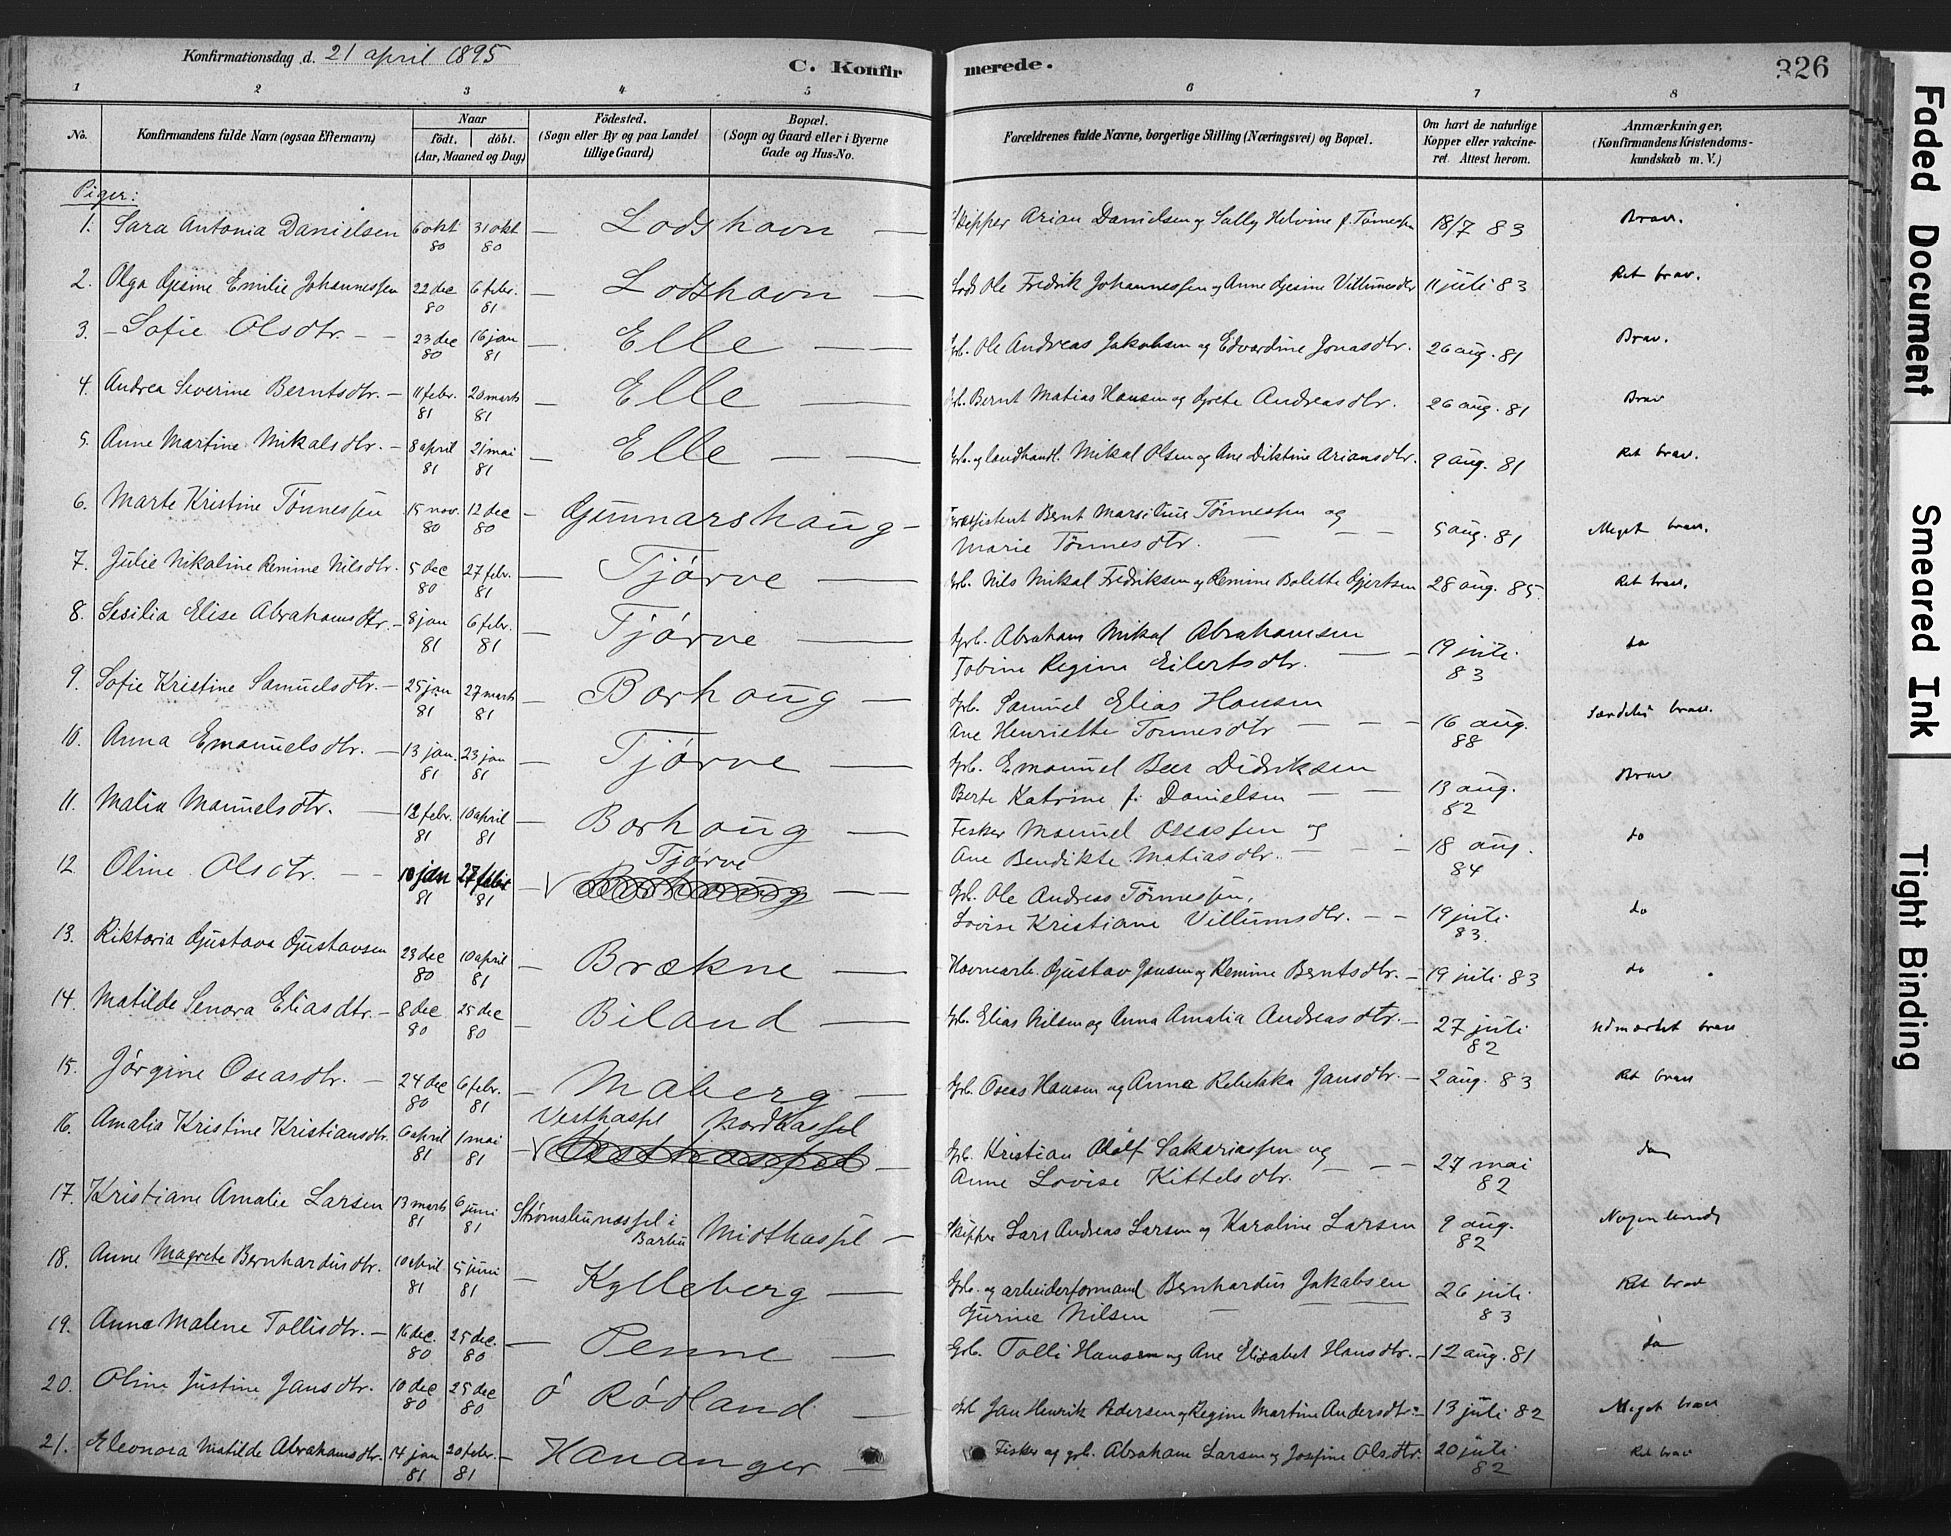 Konfirmationsdag d. 21 april 1895
C. Konfirmerede.
326
1 2 3 4 5 6 7 8
No.
Konfirmandens fulde Navn (ogsaa Efternavn)
Naar
født. døbt.
(Aar, Maaned og Dag)
Fødested.
(Sogn eller By og paa Landet
tillige Gaard)
Bopæl.
(Sogn og Gaard eller i Byerne
Gade og Hus-No.
Forældrenes fulde Navne, borgerlige Stilling (Næringsvei) og Bopæl.
Om havt de naturlige
Kopper eller vakcine-
ret. Attest herom.
Anmærkninger,
(Konfirmandens Kristendoms-
kundskab m. V.)
Piger:
1. Sara Antonia Danielsen 6 okt 80 31 okt 80 Lodshavn — Skipper Arian Danielsen og Sally Helvine f. Tønnessen 18/7 83 Brav.
2. Olga Gjesine Emilie Johannessen 22 dec 80 6 febr. 81 — Lodshavn — Lods Ole Fredrik Johannessen og Anne Gjesine Villumsdtr 11 juli 83 Ret brav.
3. Sofie Olsdtr. — 23 dec 80 16 jan 81 — Elle — Grb. Ole Andreas Jakobsen og Edvardine Jonasdtr. 26 aug. 81 Brav.
4. Andrea Severine Berntsdtr. — 11 febr. 81 20 marts 81 — Elle — Grb. Bernt Matias Hansen og Grete Andreasdtr. 26 aug. 81 Brav
5. Anne Martine Mikalsdtr. — 8 april 81 21 mai 81 — Elle — Grb. og landhandl. Mikal Olsen og Ane Diktine Ariansdtr. 9 aug. 81 Ret brav.
6. Marte Kristine Tønnessen 15 nov. 80 12 dec 80 — Gunnarshaug — Bernt Marselius Tønnessen og
Marie Tønnesdtr. — 5 aug. 81 Meget brav.
7. Julie Nikoline Remine Nilsdtr. 5 dec 80 27 febr. 81 — Tjørve — Grb. Nils Mikal Fredriksen og Remine Bolette Gjertsen 28 aug. 85. Ret brav.
8. Sesilia Elise Abrahamsdtr. — 8 jan 81 6 febr. 81 — Tjørve — Grb. Abraham Mikal Abrahamsen
Tobine Regine Eilertsdtr. — 19 juli 83 do
9. Sofie Kristine Samuelsdtr. — 25 jan 81 27 marts 81 — Borhoug — Grb. Samuel Elias Hansen
Ane Henriette Tønnesdtr — 16 aug. 88 Særdeles brav.
10. Anna Emanuelsdtr. — 13 jan. 81 23 jan 81 — Tjørve — Grb. Emanuel Beer Didriksen
Berte Katrine f. Danielsen — 13 aug. 82 Brav
11. Malia Manuelsdtr. — 12 febr. 81 10 april 81 — Borhoug — Fisker Manuel Oseassen og
Ane Bendikte Matiasdtr. — 18 aug. 84 do
12 Oline Olsdtr. — 10 jan 81 27 febr 81 — Tjørve — Grb. Ole Andreas Tønnessen,
Lovise Kristiane Villumsdtr. — 19 juli 83. do
13. Riktoria Gustava Gustavsen 23 dec 80 10 april 81 — Brækne — Havnearb. Gustav Jansen og Remine Berntsdtr. — 19 juli 83 do
14. Matilde Senora Eliasdtr. — 8 dec 80 25 dec 80 — Biland — Grb. Elias Nilsen og Anna Amalia Andreasdtr. — 27 juli 82 Udmærket brav
15. Jørgine Oseasdtr. — 24 dec 80 6 febr. 81 — Maberg — Grb. Oseas Hansen og Anna Rebekka Jansdtr. — 2 aug. 83 Ret brav
16. Amalia Kristine Kristiansdtr. 6 april 81 1 mai 81 — Vesthassel Nordhassel — Grb. Kristian Adolf Sakariassen og
Anne Lovise Kittelsdtr. — 27 mai 82 do
17. Kristiane Amalie Larsen 13 marts 81 6 juni 81 i Barbu Midthassel — Skipper Lars Andreas Larsen og Karoline Larsen 9 aug. 82
18. Anne Magrete Bernhardusdtr. 10 april 81 5 juni 81 — Kylleberg — Grb. og arbeiderformand Bernhardus Jakobsen
Gurine Nilsen — 26 juli 83 Ret brav
19. Anne Malene Tollisdtr. — 16 dec. 80 25 dec. 80 — Penne — Grb. Tolli Hansen og Ane Elisabet Hansdtr. — 12 aug. 81 do
20. Oline Justine Jansdtr. 10 dec 80 25 dec 80 Ø Rødland — Grb Jan Henrik Pedersen og Regine Martine Andersdtr. 13 juli 82 Meget brav
21. Eleonora Matilde Abrahamsdtr. 14 jan 81 20 febr. 81 — Hananger Fisker og grb. Abraham Larsen og Josefine Olsdtr. 20 juli 82 Ret brav
Faded Document
Smeared Ink
Tight Binding